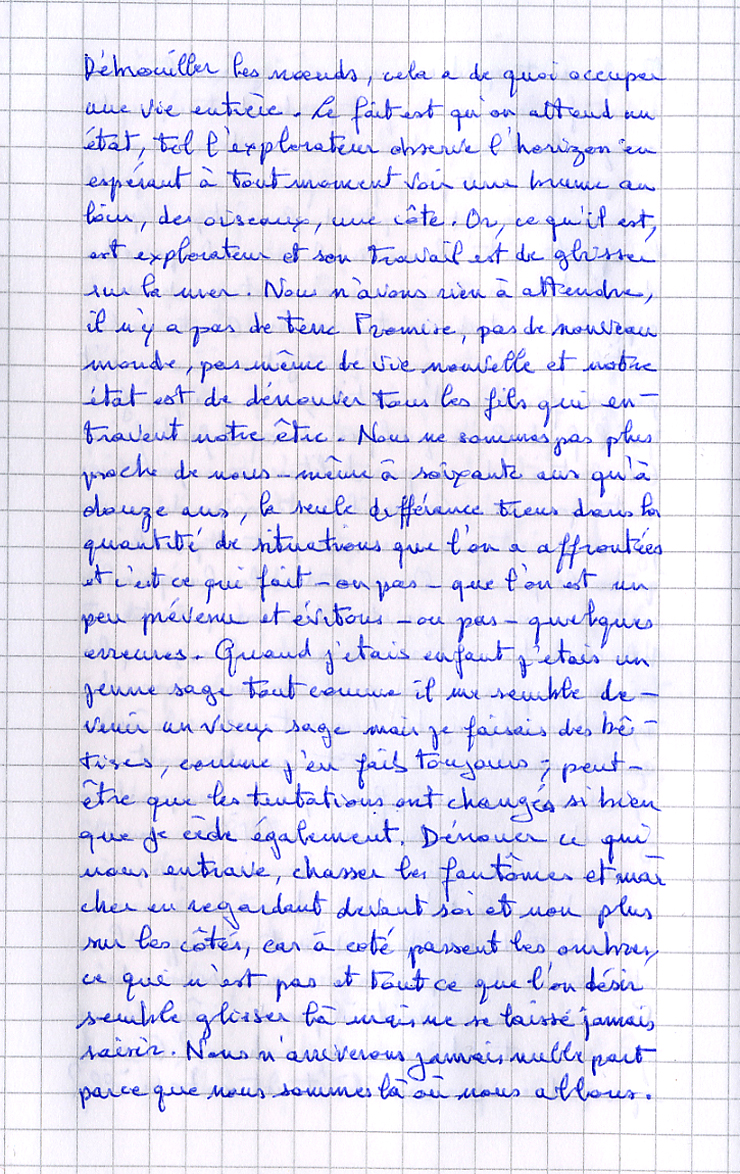 Débrouiller les nœuds, cela a de quoi occuper
une vie entière. Le fait est qu'on attend un
état, tel l'explorateur observe l'horizon en
espérant à tout moment voir une brume au
loin, des oiseaux, une côte. Or, ce qu'il est,
est explorateur et son travail est de glisser
sur la mer. Nous n'avons rien à attendre,
il n'y a pas de terre Promise, pas de nouveau
monde, pas même de vie nouvelle et notre
état est de dénouer tous les fils qui en-
travent notre être. Nous ne sommes pas plus
proche de nous-même à soixante ans qu'à
douze ans, la seule différence tiens dans la
quantité de situations que l'on a affrontées
et c'est ce qui fait - ou pas - que l'on est un
peu prévenu et évitons - ou pas - quelques
erreures. Quand j'étais enfant j'étais un
jeune sage tout comme il me semble de-
venir un vieux sage mais je faisais des bê-
tises, comme j'en fais toujours ; peut-
être que les tentations ont changés si bien
que je cède également. Dénouer ce qui
nous entrave, chasser les fantômes et mar
cher en regardant devant soi et non plus
sur les côtés, car à coté passent les ombres,
ce qui n'est pas et tout ce que l'on désir
semble glisser là mais ne se laisse jamais
saisir. Nous n'arriverons jamais nulle part
parce que nous sommes là où nous allons.